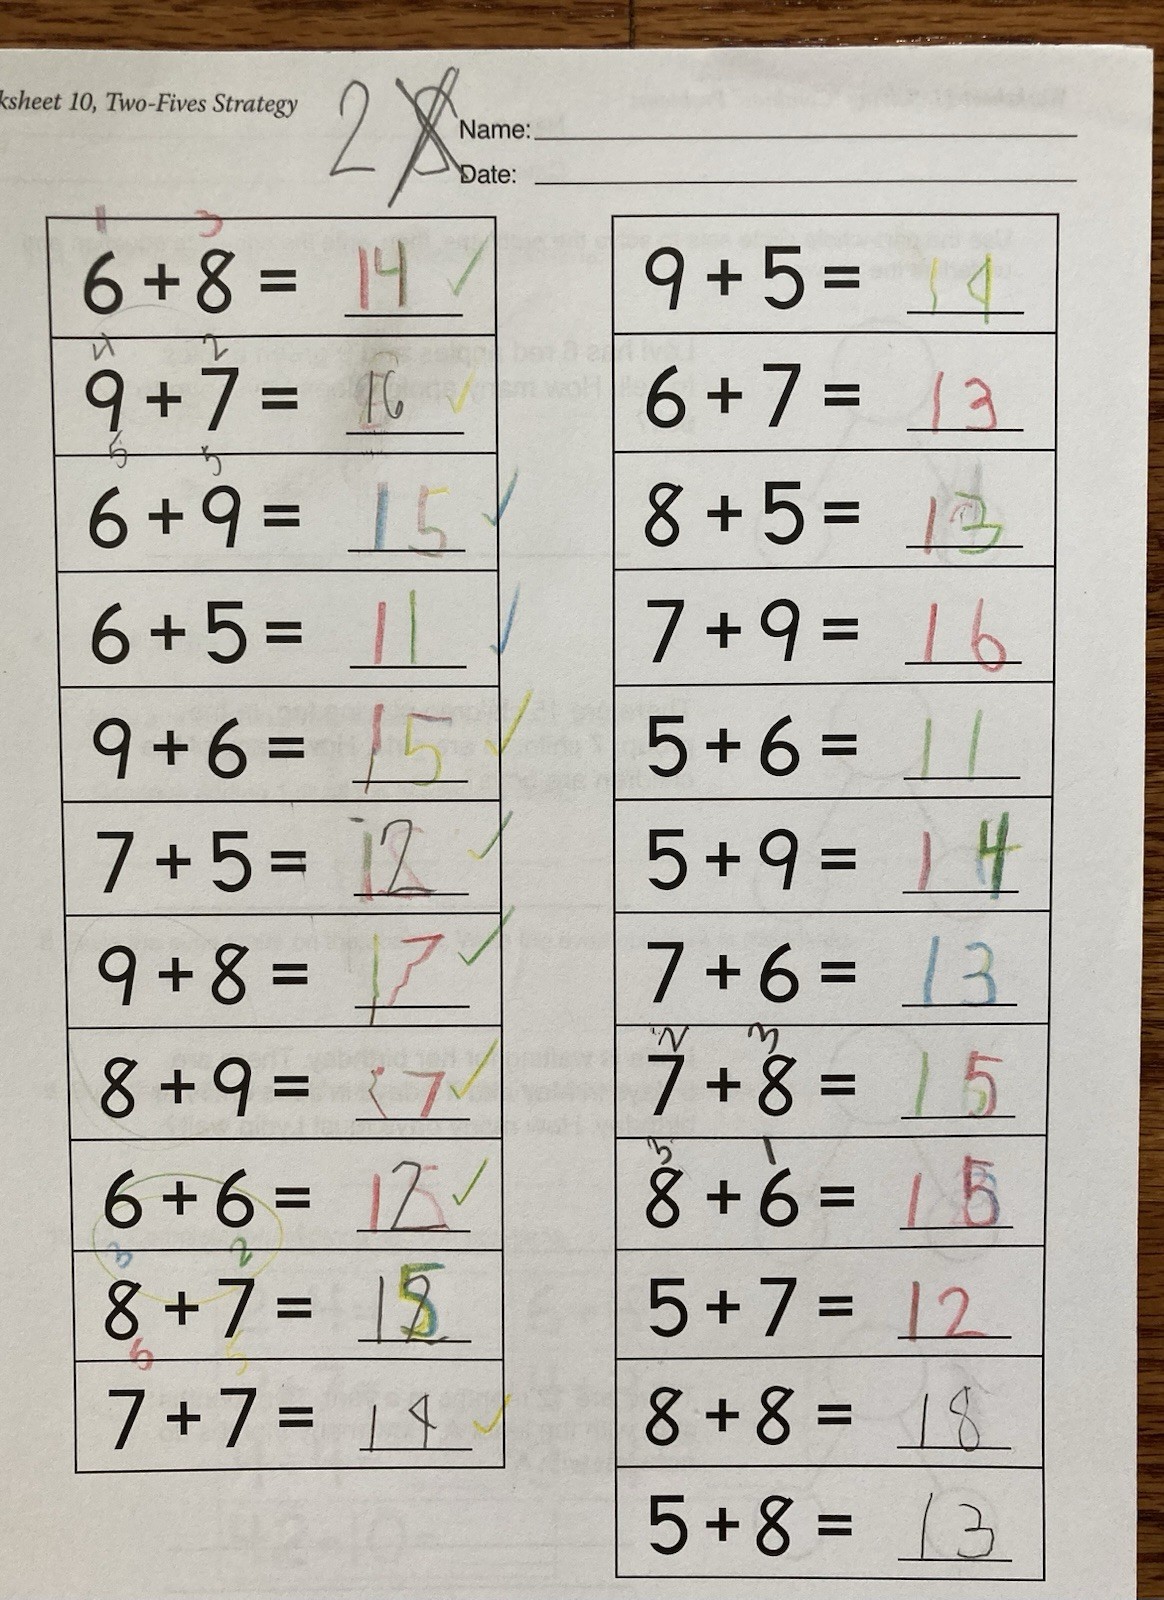 ksheet 10, Two-Fives Strategy
2 8
Name:
Date:
1 3
6 + 8 = 14 ✓
4 2
9 + 7 = 16 ✓
5 5
6 + 9 = 15 ✓
6 + 5 = 11 ✓
9 + 6 = 15 ✓
7 + 5 = 12 ✓
9 + 8 = 17 ✓
8 + 9 = 17 ✓
6 + 6 = 12 ✓
3 2
8 + 7 = 15
5 5
7 + 7 = 14 ✓
9 + 5 = 14
6 + 7 = 13
8 + 5 = 13
7 + 9 = 16
5 + 6 = 11
5 + 9 = 14
7 + 6 = 13
2 3
7 + 8 = 15
3 1
8 + 6 = 15
5 + 7 = 12
8 + 8 = 18
5 + 8 = 13